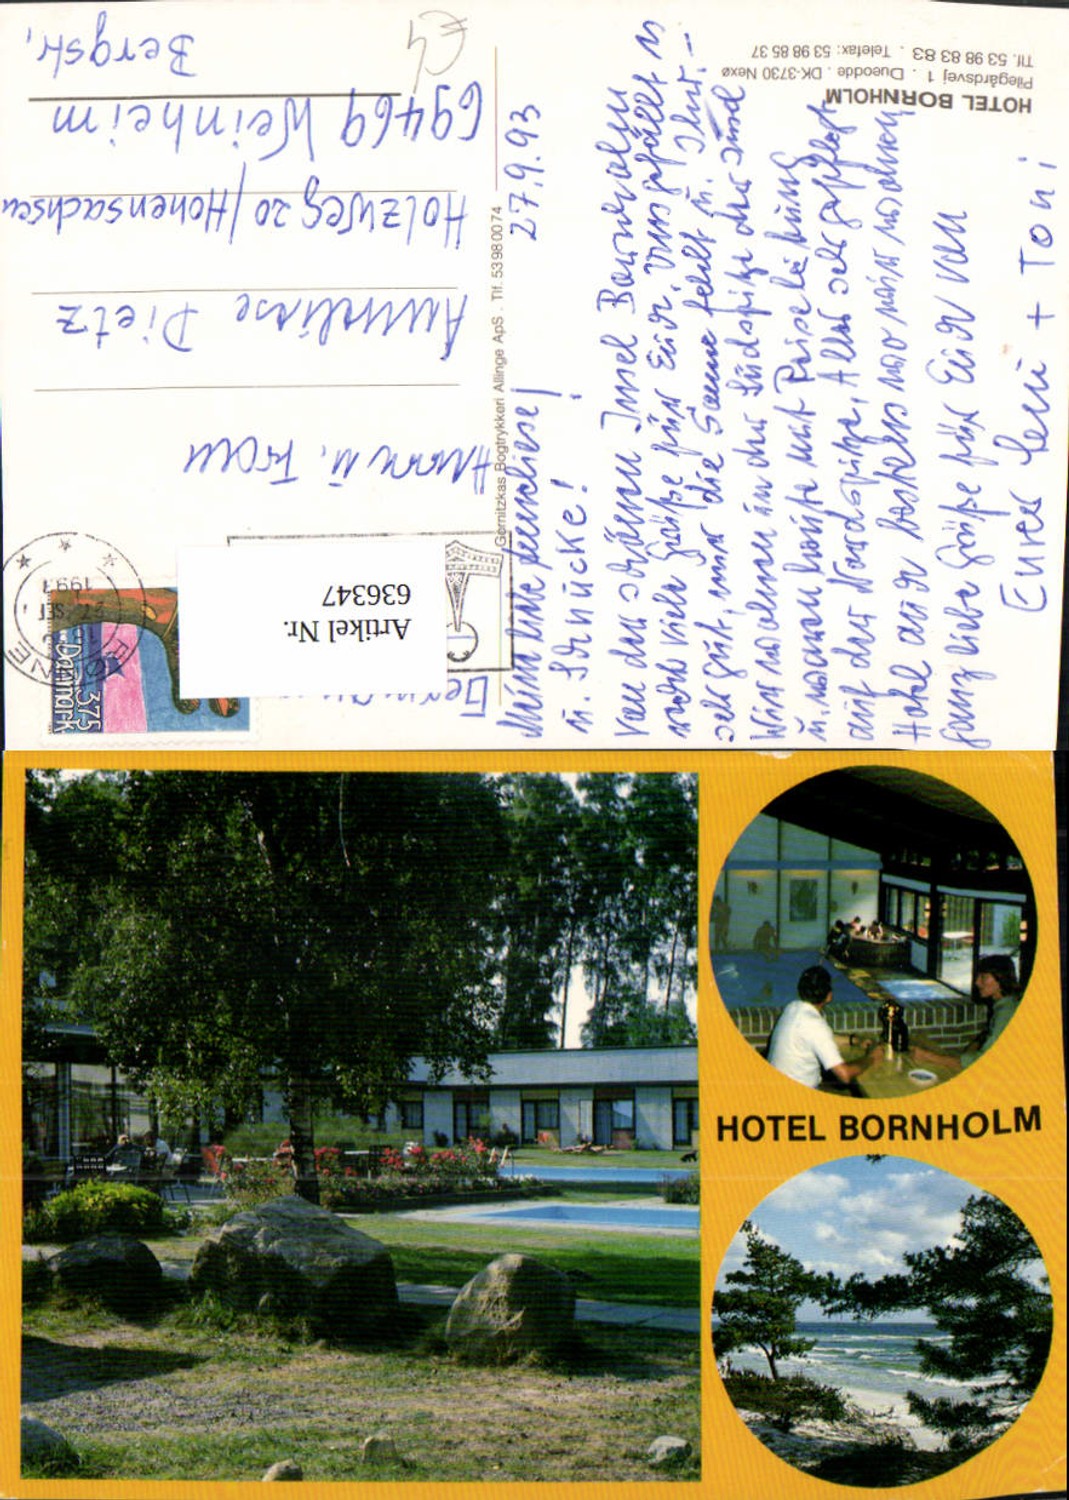 HOTEL BORNHOLM
Pilegårdsvej 1 . Dueodde . DK-3730 Nexø
Tlf. 53 98 83 83 . Telefax: 53 98 85 37
27.9.93
Meine liebe Anneliese!
u. Schnucke!
Von der schönen Insel Bornholm
viele Grüße für Euch. Uns gefällt es
sehr gut, nur die Sonne fehlt u. Ihr.
Wir wohnen an der Südspitze der Insel
u. waren heute mit Reiseleitung
auf der Nordspitze. Alles sehr gepflegt
Hotel auch bestens wo wir wohnen
ganz liebe Grüße für Euch von
Eurer Leni + Toni
Görnitzkas Bogtrykkeri Allinge ApS . Tlf. 53980074
Danmark
375
RØNNE
1993
Artikel Nr.
636347
Germany
u. Frau
Anneliese Dietz
Holzweg 20/Hohensachsen
69469 Weinheim
Bergstr.
€4
HOTEL BORNHOLM